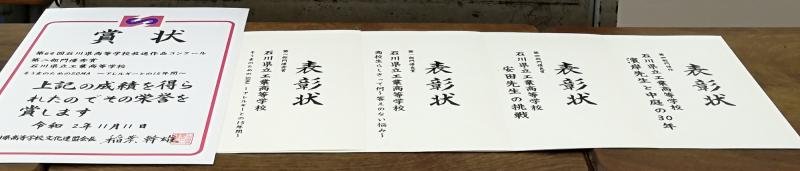 賞状
第68回石川県高等学校放送作品コンクール
第二部門優秀賞
石川県立工業高等学校
上記の成績を得ら
れたのでその栄誉を
賞します
令和2年11月11日
県高等学校文化連盟会長 稲葉幹雄
表彰状
石川県立工業高等学校
表彰状
石川県立工業高等学校
高校生らしさって何？答えのない悩み
表彰状
石川県立工業高等学校
安田先生の挑戦
表彰状
石川県立工業高等学校
濱岸先生と中庭の30年